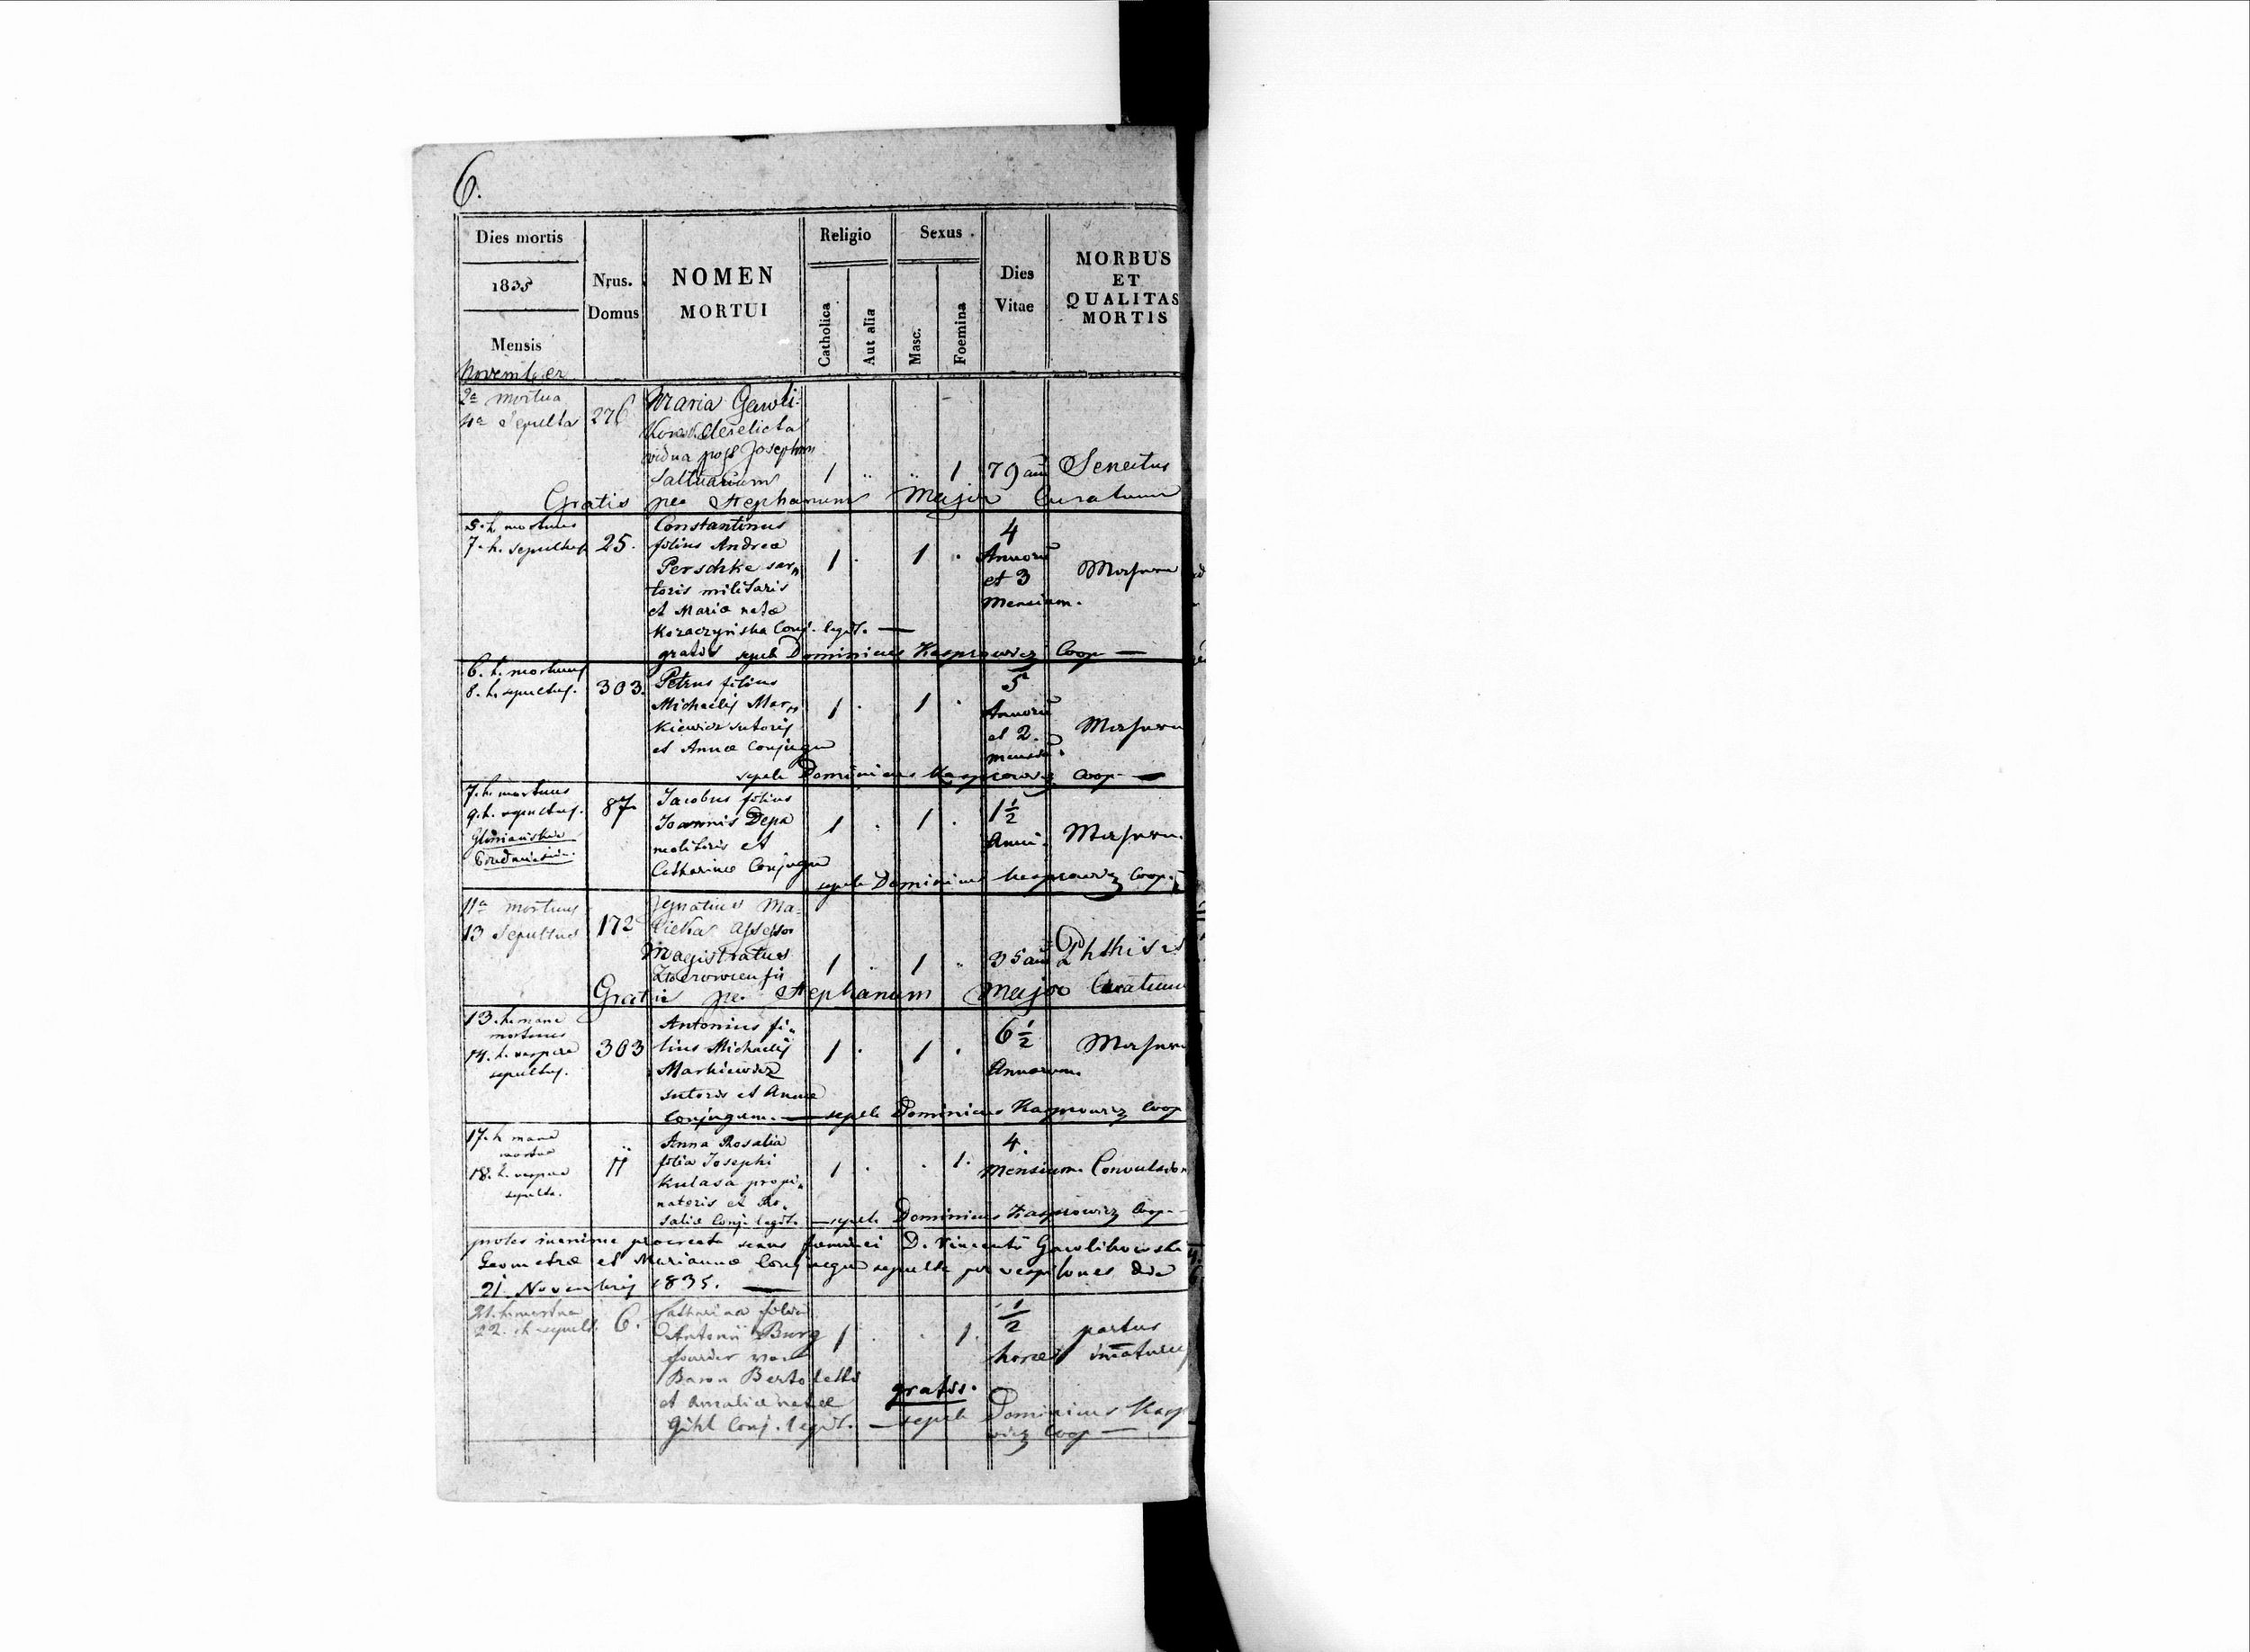 6.
Dies mortis
1835
Mensis
November
Nrus.
Domus
NOMEN
MORTUI
Religio
Catholica
Aut alia
Sexus
Masc.
Foemina
Dies
Vitae
MORBUS
ET
QUALITAS
MORTIS
2a mortua
4a Sepulta
276
Maria Gawli-
derelicta
vidua post Josephum
Saltuarium
1 1
79
Senectus
Gratis per Stephanum Major Curatum
5. h. mortuus
7. h. sepultus
25.
Constantinus
filius Andreæ
Perschke sar„
toris militaris
et Mariæ natæ
Kozaczyńska Conj. legit. —
1 1
4
Annorũ
et 3
Mensium.
gratis sepel. Dominicus Kasprowicz Coop —
6. h. mortuus
8. h. sepultus.
303.
Petrus filius
Michaelis Mar„
kiewicz sutoris
et Annæ Conjugum
1 1
5
Annorũ
et 2
sepel. Dominicus Kasprowicz Coop —
7. h. mortuus
9. h. sepultus.
87
Jacobus filius
Joannis Depa
molitoris et
Catharinæ Conjugum
1 1
1½
Anni.
sepel. Dominicus Kasprowicz Coop.
11a mortuus
13 Sepultus
172
Ignatius Ma-
Assessor
Magistratus
1 1
35
Phthisis
Gratis per Stephanum Major Curatum
13. h. mane
mortuus
14. h. vespere
sepultus.
303
Antonius fi„
lius Michaelis
Markiewicz
sutoris et Annæ
Conjugum. — sepel. Dominicus Kasprowicz Coop
1 1
6½
Annorum.
17. h. mane
mortua
18. h. vespere
sepulta.
11
Anna Rosalia
filia Josephi
Kulasa propi„
natoris et Ro„
saliæ Conj. legit. — sepel. Dominicus Kasprowicz Coop —
1 1.
4
Mensium
Convulsion
proles inanimis procreata sexus fæminei D. Vincentii Gawlikowski
Geometræ et Mariannæ Conjugum sepulta per vespilones die
21. Novembris 1835. —
21. h. mortua
22. h. sepult.
6.
Catharina filia
Antonii Burg
Baron Bertoletti
et Amaliæ natæ
Gihl Conj. legit. — sepel. Dominicus Kasp
wicz Coop —
1 1.
½
horæ
partus
gratis.